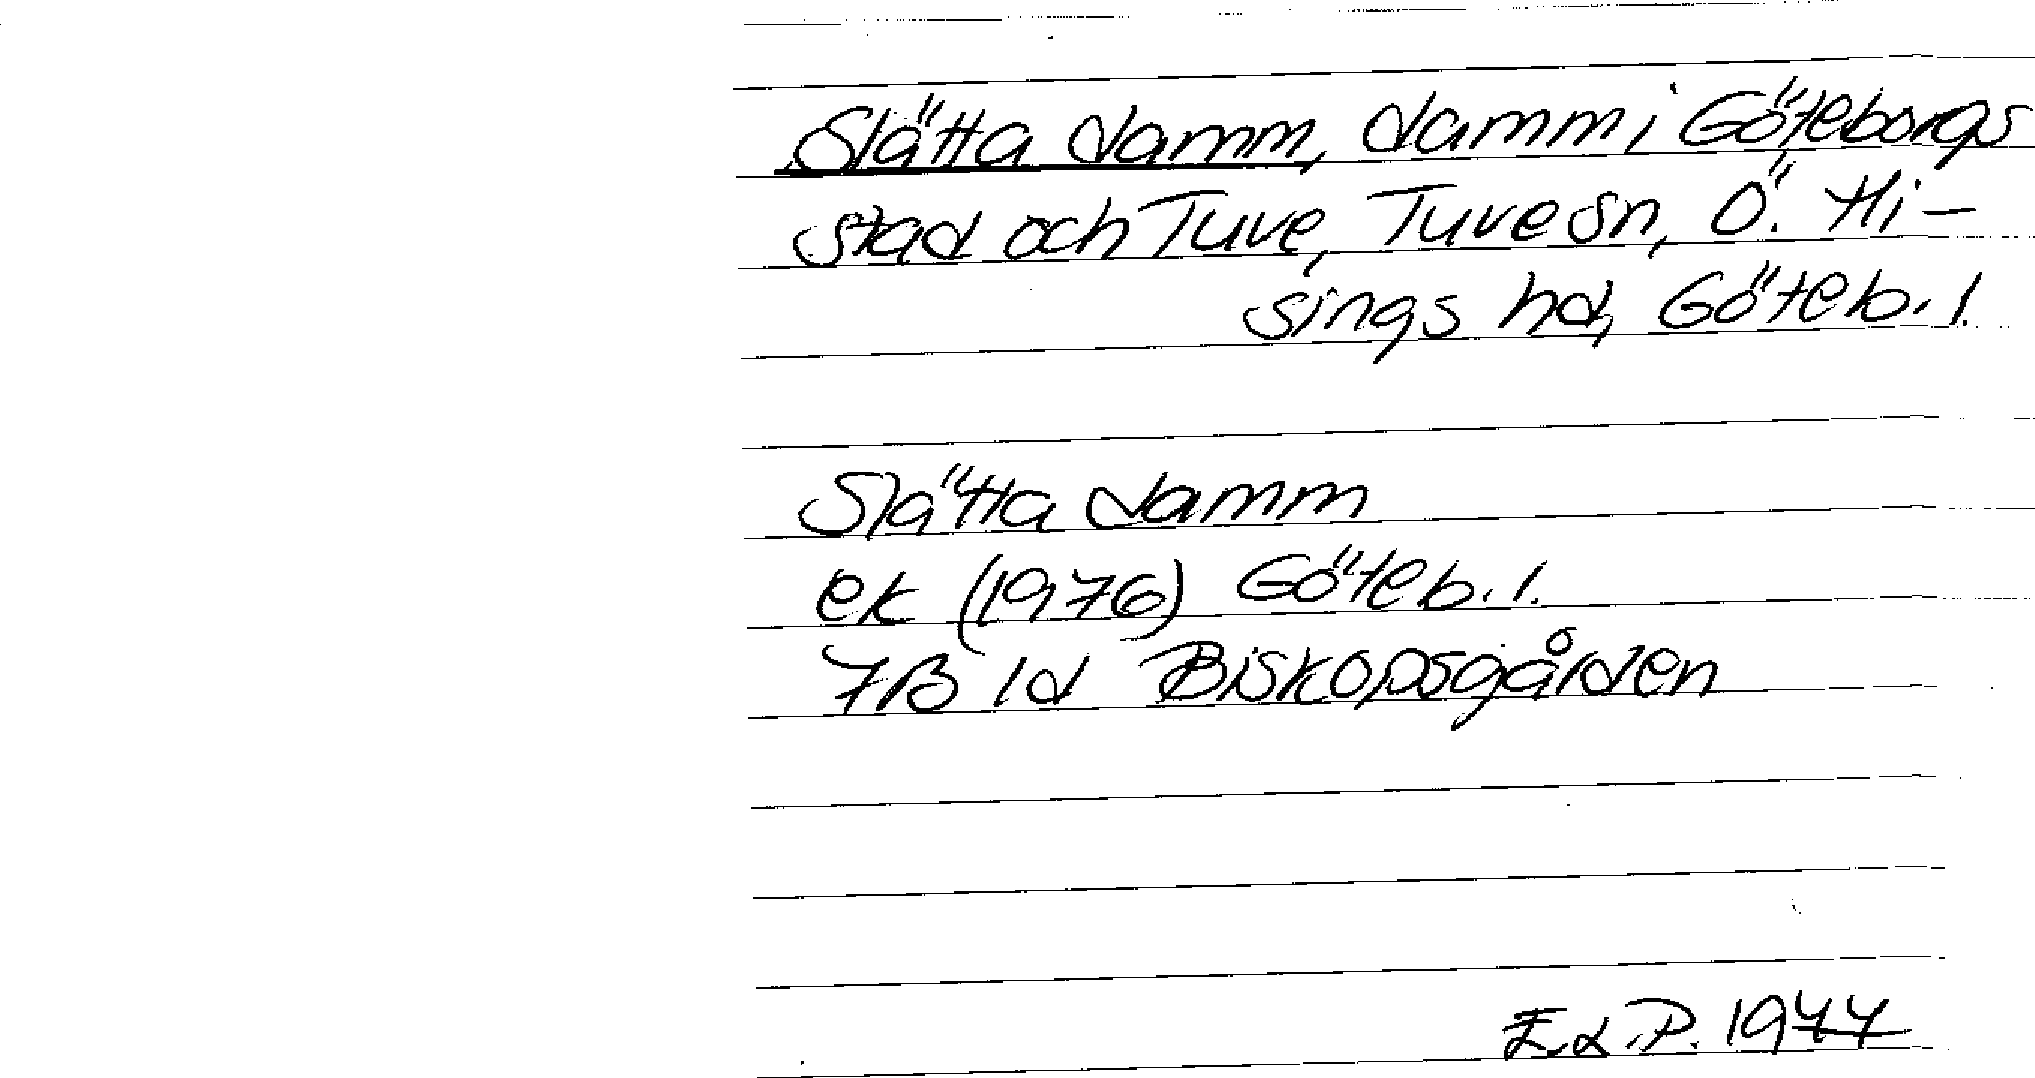 Slätta damm, damm i Göteborgs
stad och Tuve, Tuve sn, Ö. Hi-
sings hd, Göteb. l.
Slätta damm
ek (1976) Göteb. l.
7B 1d Biskopsgården